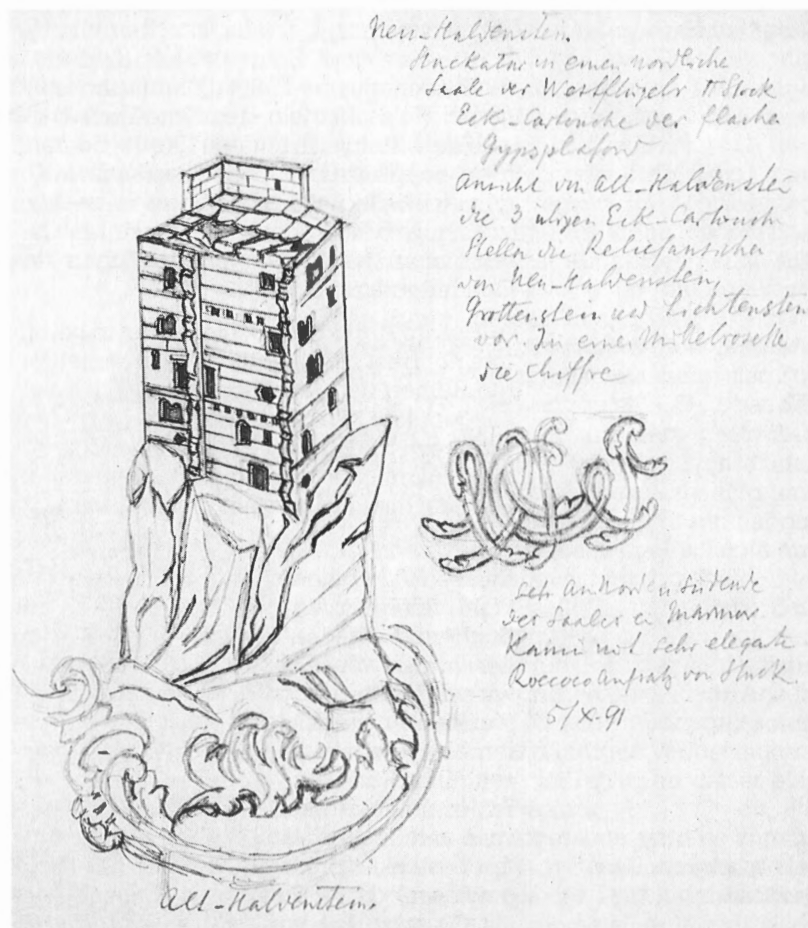 Neu-Haldenstein.
Stuckatur in einem nördliche
Saale des Westflügels II Stock
Eck-Cartouche der flache
Gypsplafond
Ansicht von Alt-Haldenstei
die 3 übrigen Eck-Cartouch
stellen die Reliefansichten
von Neu-Haldenstein,
Grottenstein und Lichtenstein
vor. In einer Mittelrosette
die Chiffre
Nordende
der Saales ein Marmor
Kamin mit sehr elegante
Roccocoaufsatz von Stuck
5/X.91
Alt-Haldenstein.